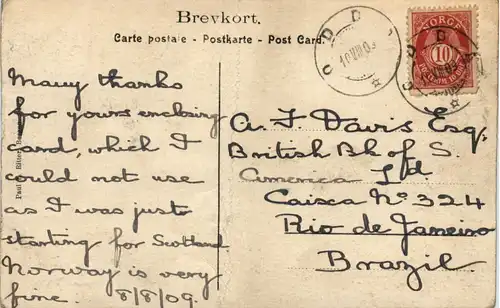 Brevkort.
Carte postale - Postkarte - Post Card.
Many thanks
for yours enclosing
card, which I
could not use
as I was just
starting for Scotland.
Norway is very
fine. 8/8/09.
ODDA
10 VIII 09
NORGE
10
ODDA
A. F. Davis Esq.
British Bk of S.
America Ltd
Caixa No 324
Rio de Janeiro
Brazil.
Paul